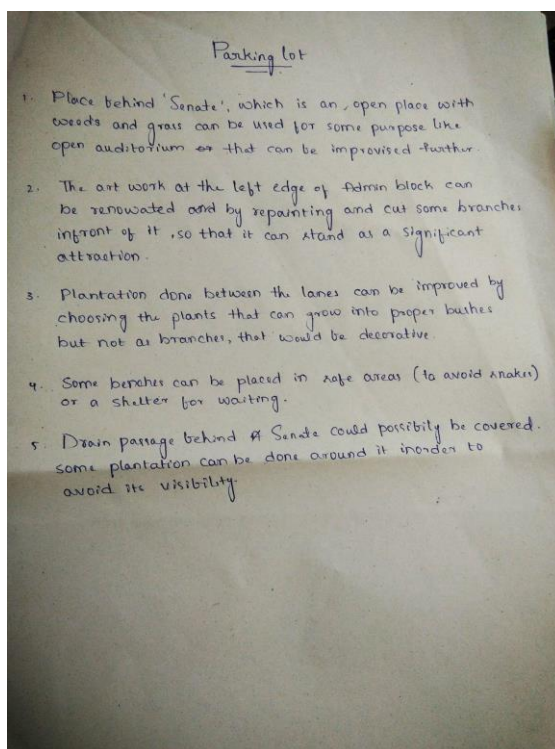 Parking lot
1. Place behind 'Senate', which is an, open place with
weeds and grass can be used for some purpose like
open auditorium or that can be improvised further.
2. The art work at the left edge of Admin block can
be renowated and by repainting and cut some branches
infront of it, so that it can stand as a significant
attraction.
3. Plantation done between the lanes can be improved by
choosing the plants that can grow into proper bushes
but not as branches, that would be decorative.
4. Some benches can be placed in safe areas (to avoid snakes)
or a shelter for waiting.
5. Drain passage behind Senate could possibily be covered.
some plantation can be done around it inorder to
avoid its visibility.